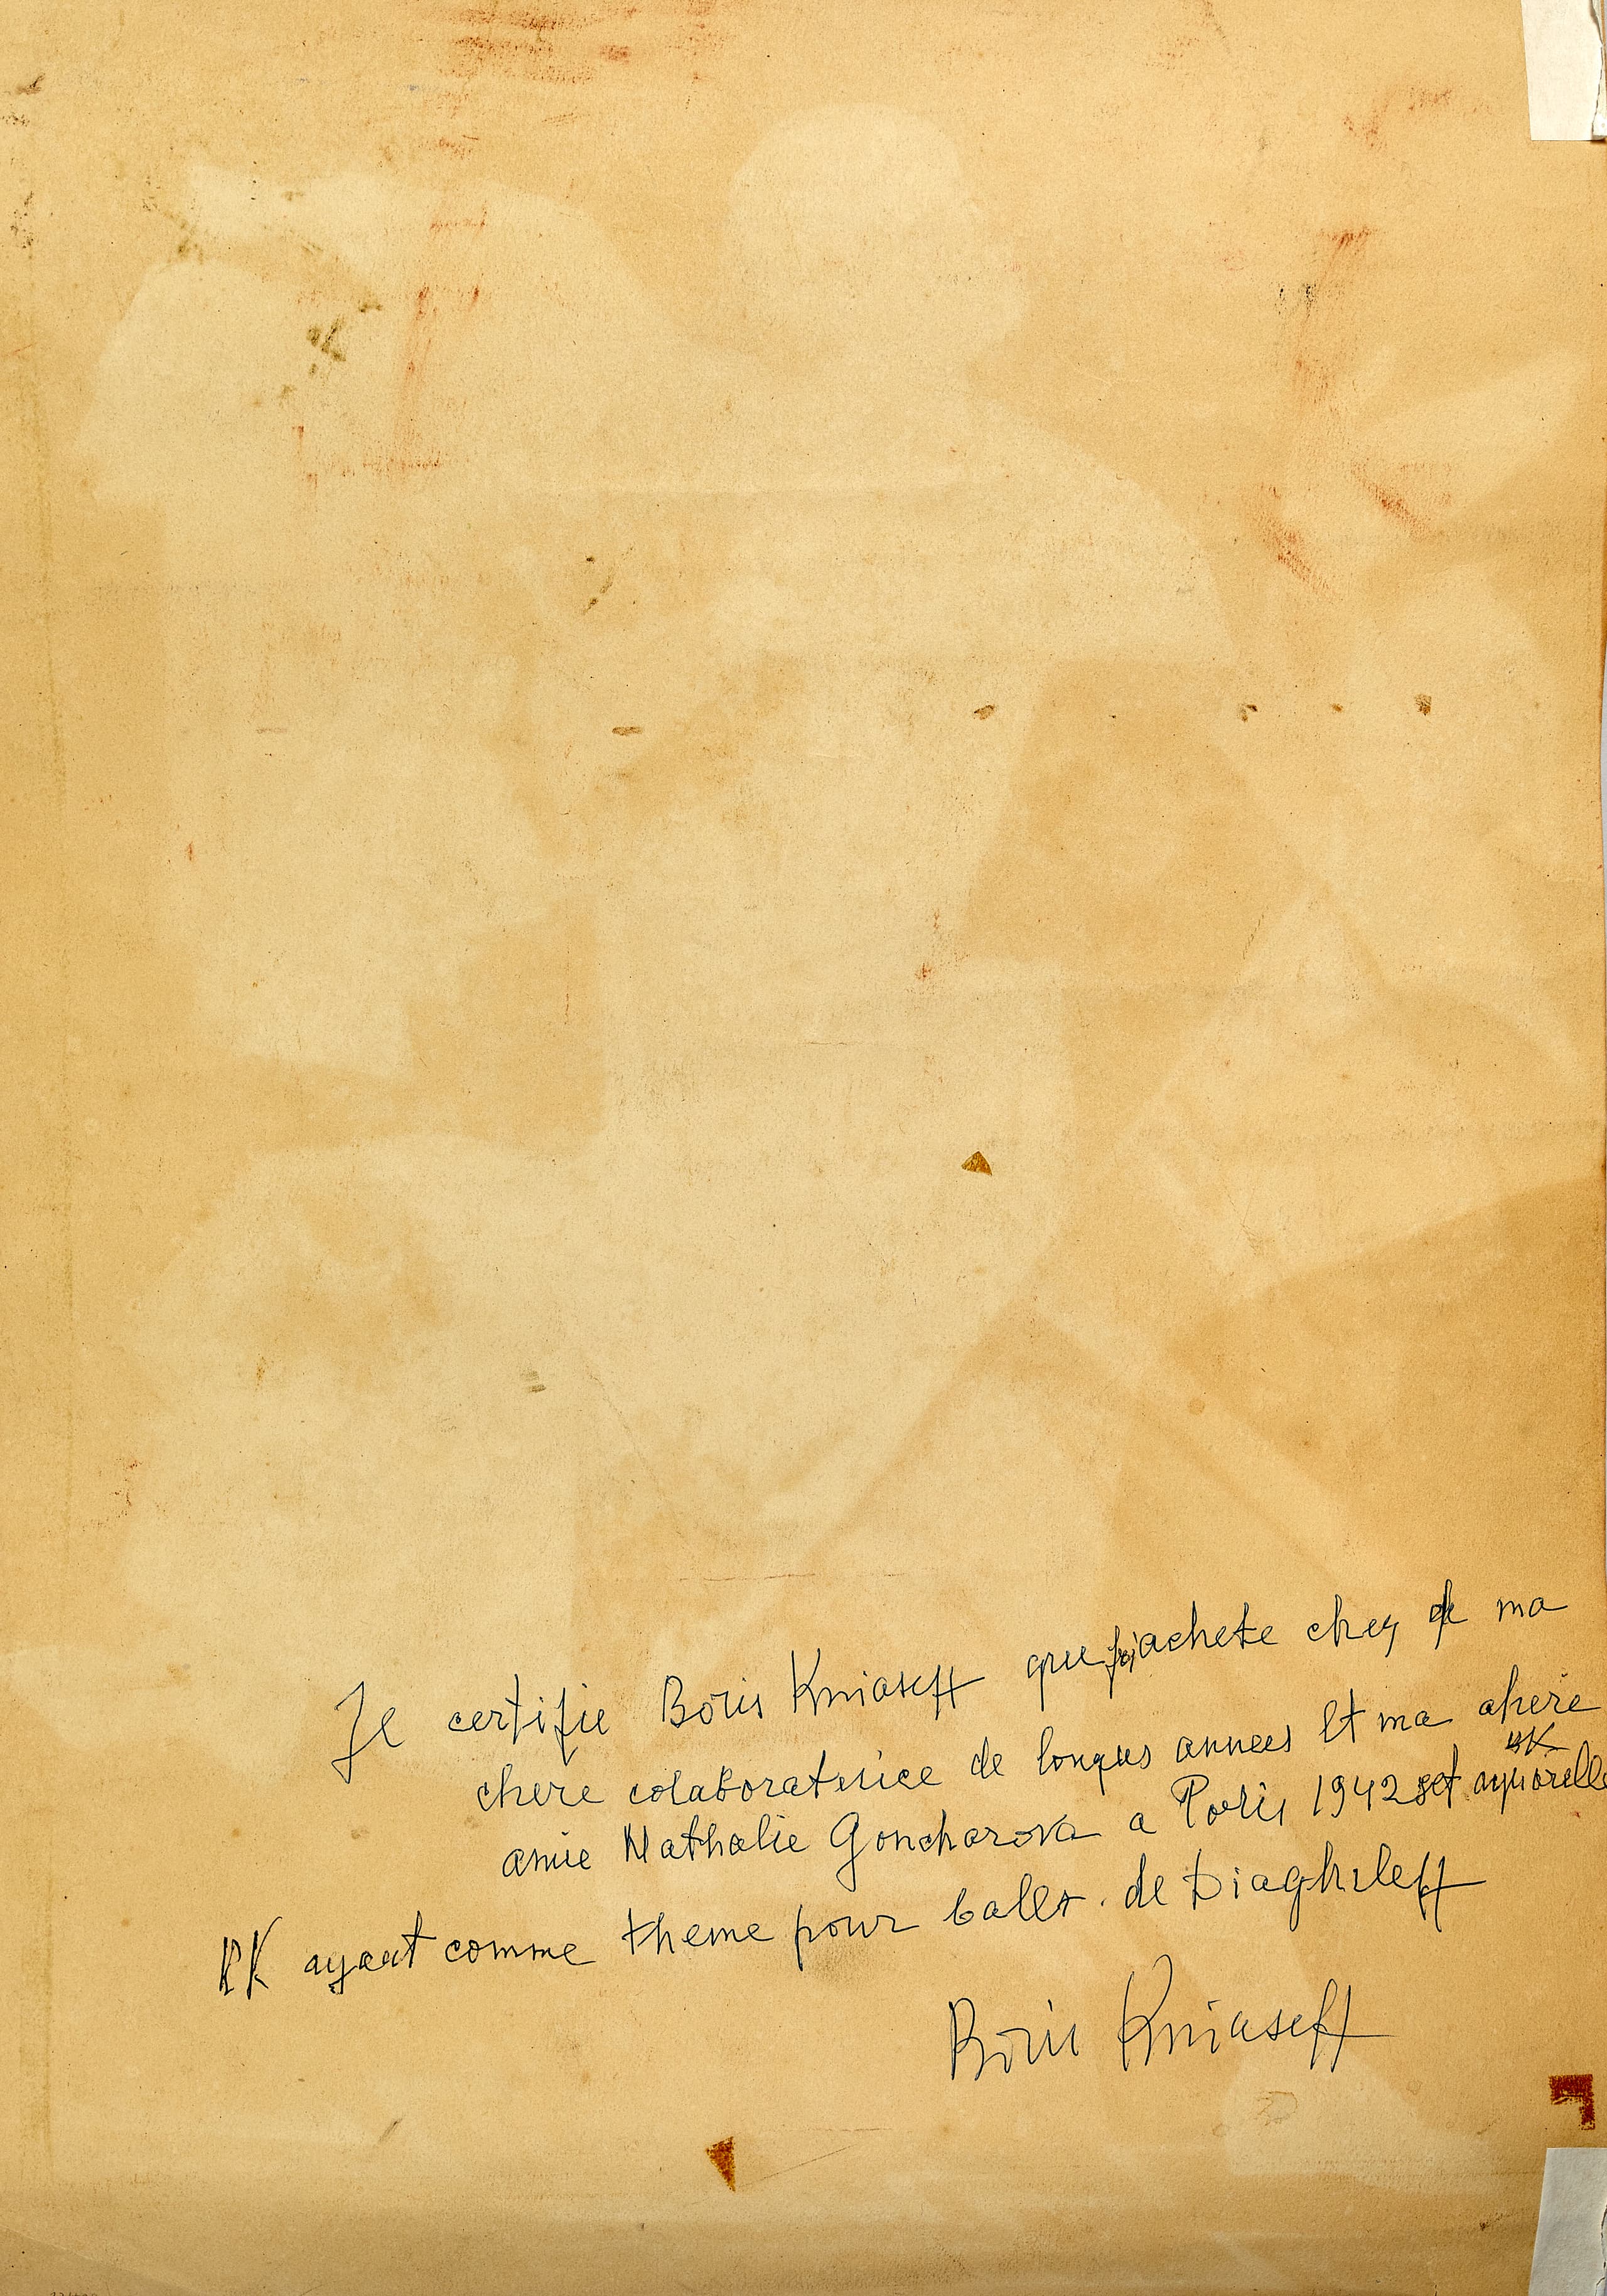 Je certifie Boris Kniaseff que j'achete chez de ma
chere colaboratrice de longues annees et ma chere
BK
amie Nathalie Goncharova a Paris 1942 set aquorelle
BK ayant comme theme pour ballet de Diaghileff
Boris Kniaseff